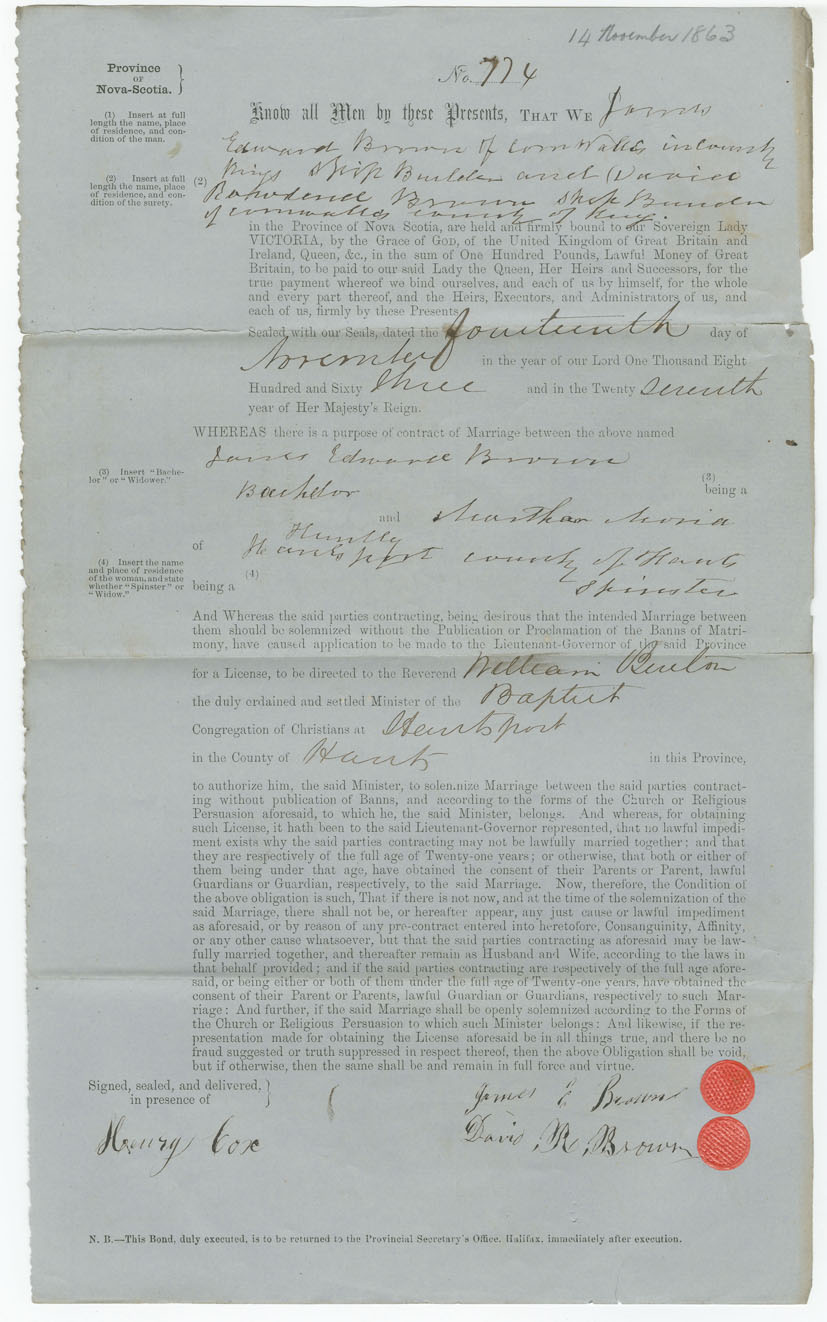 14 November 1863
Province
OF
Nova-Scotia.
No. 774
(1) Insert at full
length the name, place
of residence, and con-
dition of the man.
Know all Men by these Presents, THAT WE James
Edward Brown of Cornwallis in County
Kings Ship Builder and David
(2) Insert at full
length the name, place
of residence, and con-
dition of the surety.
(2)
Brown Ship Builder
of Cornwallis County of Kings
in the Province of Nova Scotia, are held and firmly bound to our Sovereign Lady
VICTORIA, by the Grace of GOD, of the United Kingdom of Great Britain and
Ireland, Queen, &c., in the sum of One Hundred Pounds, Lawful Money of Great
Britain, to be paid to our said Lady the Queen, Her Heirs and Successors, for the
true payment whereof we bind ourselves, and each of us by himself, for the whole
and every part thereof, and the Heirs, Executors, and Administrators of us, and
each of us, firmly by these Presents
Sealed with our Seals, dated the fourteenth day of
November in the year of our Lord One Thousand Eight
Hundred and Sixty three and in the Twenty seventh
year of Her Majesty's Reign.
WHEREAS there is a purpose of contract of Marriage between the above named
James Edward Brown
(3) Insert "Bache-
lor" or "Widower."
(3)
Bachelor being a
and Martha Moria
Huntly
of Hantsport county of Hants
(4) Insert the name
and place of residence
of the woman, and state
whether "Spinster" or
"Widow."
(4)
being a Spinster
And Whereas the said parties contracting, being desirous that the intended Marriage between
them should be solemnized without the Publication or Proclamation of the Banns of Matri-
mony, have caused application to be made to the Lieutenant-Governor of the said Province
for a License, to be directed to the Reverend William Burton
the duly ordained and settled Minister of the Baptist
Congregation of Christians at Hantsport
in the County of Hants in this Province,
to authorize him, the said Minister, to solemnize Marriage between the said parties contract-
ing without publication of Banns, and according to the forms of the Church or Religious
Persuasion aforesaid, to which he, the said Minister, belongs. And whereas, for obtaining
such License, it hath been to the said Lieutenant-Governor represented, that no lawful impedi-
ment exists why the said parties contracting may not be lawfully married together; and that
they are respectively of the full age of Twenty-one years; or otherwise, that both or either of
them being under that age, have obtained the consent of their Parents or Parent, lawful
Guardians or Guardian, respectively, to the said Marriage. Now, therefore, the Condition of
the above obligation is such, That if there is not now, and at the time of the solemnization of the
said Marriage, there shall not be, or hereafter appear, any just cause or lawful impediment
as aforesaid, or by reason of any pre-contract entered into heretofore, Consanguinity, Affinity,
or any other cause whatsoever, but that the said parties contracting as aforesaid may be law-
fully married together, and thereafter remain as Husband and Wife, according to the laws in
that behalf provided; and if the said parties contracting are respectively of the full age afore-
said, or being either or both of them under the full age of Twenty-one years, have obtained the
consent of their Parent or Parents, lawful Guardian or Guardians, respectively to such Mar-
riage: And further, if the said Marriage shall be openly solemnized according to the Forms of
the Church or Religious Persuasion to which such Minister belongs: And likewise, if the re-
presentation made for obtaining the License aforesaid be in all things true, and there be no
fraud suggested or truth suppressed in respect thereof, then the above Obligation shall be void,
but if otherwise, then the same shall be and remain in full force and virtue.
Signed, sealed, and delivered,
in presence of
James E Brown
Henry Cox
David R. Brown
N. B.—This Bond, duly executed, is to be returned to the Provincial Secretary's Office, Halifax, immediately after execution.